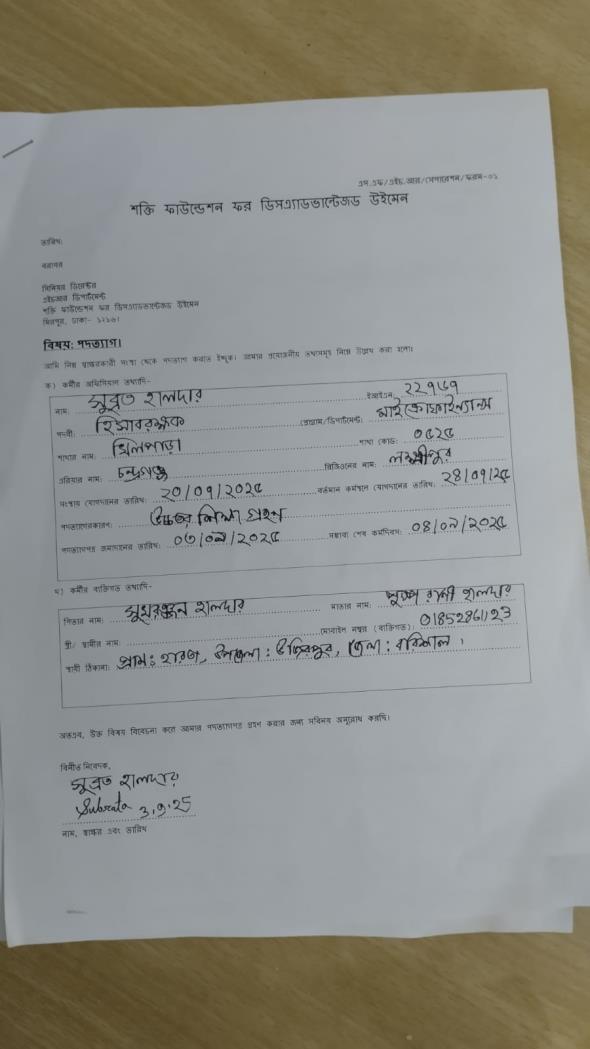 এস.এফ/এইচ.আর/সেপারেশন/ফরম-০১
শক্তি ফাউন্ডেশন ফর ডিসএ্যাডভান্টেজড উইমেন
তারিখ:
বরাবর
সিনিয়র ডিরেক্টর
এইচআর ডিপার্টমেন্ট
শক্তি ফাউন্ডেশন ফর ডিসএ্যাডভান্টেজড উইমেন
মিরপুর, ঢাকা- ১২১৬।
বিষয়: পদত্যাগ।
আমি নিম্ন স্বাক্ষরকারী সংস্থা থেকে পদত্যাগ করতে ইচ্ছুক। আমার প্রয়োজনীয় তথ্যসমূহ নিম্নে উল্লেখ করা হলো:
ক) কর্মীর অফিসিয়াল তথ্যাদি-
নাম: সুব্রত হালদার
পদবী: হিসাবরক্ষক (প্রোগ্রাম/ডিপার্টমেন্ট): মাইক্রোফাইন্যান্স
শাখার নাম: খিলপাড়া শাখা কোড: ০৫২৫
এরিয়ার নাম: চন্দ্রগঞ্জ রিজিওনের নাম: লক্ষ্মীপুর
সংস্থায় যোগদানের তারিখ: ২০/০৭/২০২৫ বর্তমান কর্মস্থলে যোগদানের তারিখ: ২৪/০৭/২৫
পদত্যাগেরকারণ: উচ্চতর শিক্ষা গ্রহণ
পদত্যাগপত্র জমাদানের তারিখ: ০৩/০৯/২০২৫ সম্ভাব্য শেষ কর্মদিবস: ০৪/০৯/২০২৫
খ) কর্মীর ব্যক্তিগত তথ্যাদি-
পিতার নাম: সুখরঞ্জন হালদার মাতার নাম: পুষ্প রানী হালদার
স্ত্রী/ স্বামীর নাম: মোবাইল নম্বর (ব্যক্তিগত):
স্থায়ী ঠিকানা: গ্রাম: হারতা, উপজেলা: উজিরপুর, জেলা: বরিশাল।
অতএব, উক্ত বিষয় বিবেচনা করে আমার পদত্যাগপত্র গ্রহণ করার জন্য সবিনয় অনুরোধ করছি।
বিনীত নিবেদক,
সুব্রত হালদার
Subrata 3.9.25
নাম, স্বাক্ষর এবং তারিখ